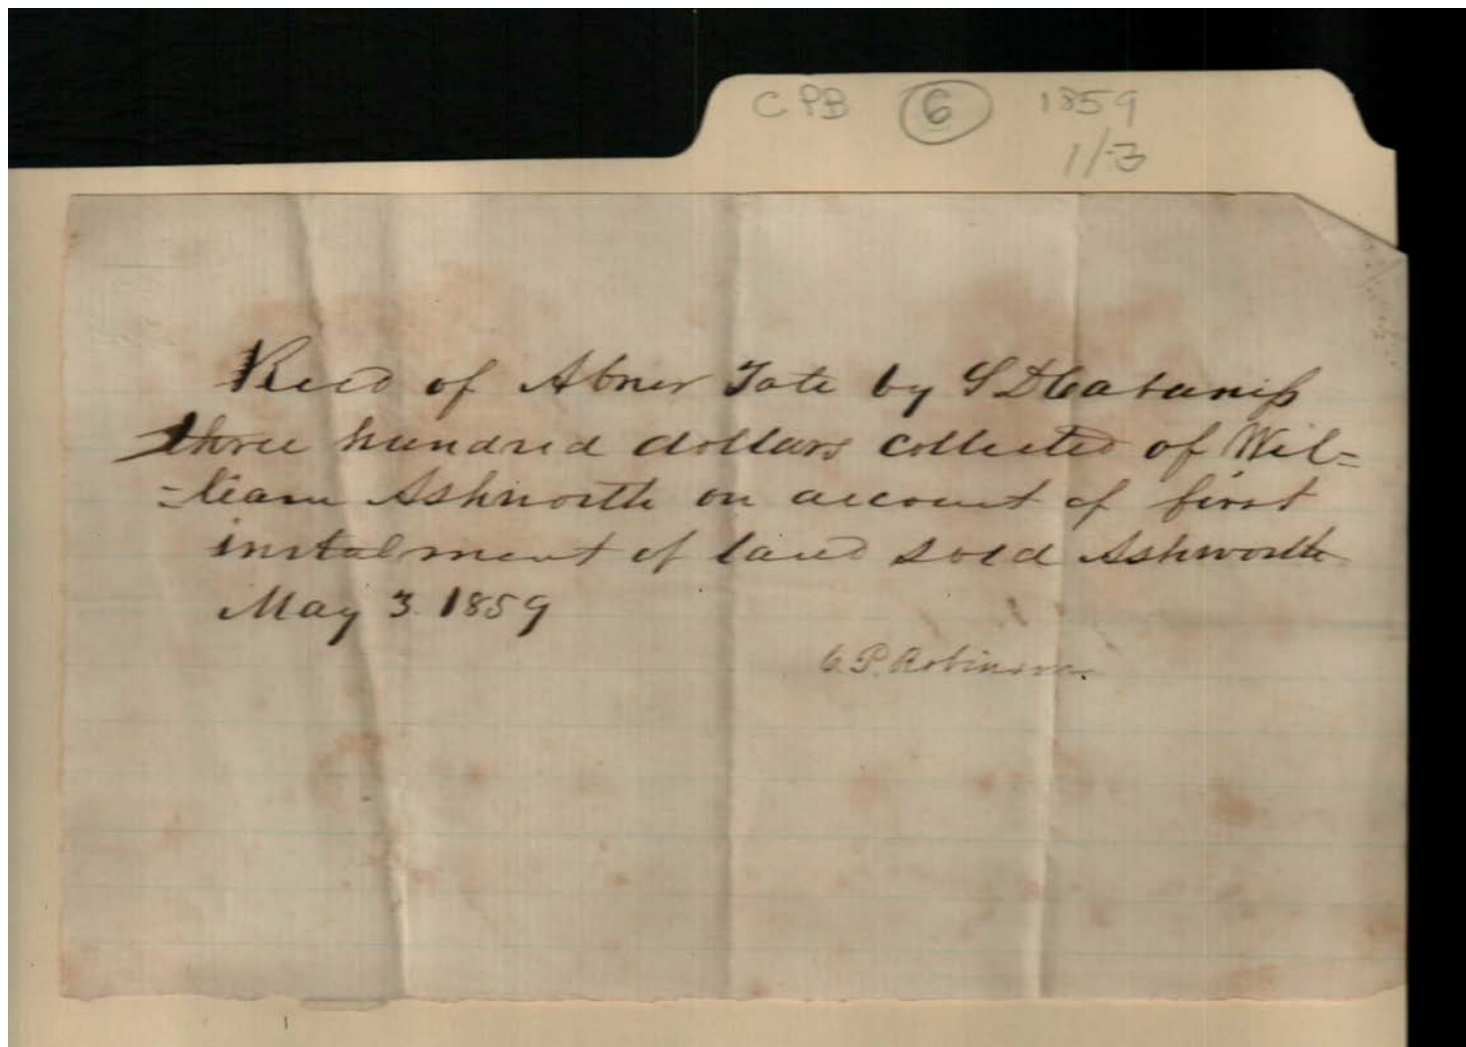 CPB 6 1859
1/3
Recd of Abner Tate by S D
three hundred dollars collected of Wil=
=liam Ashworth on account of first
instalment of land sold Ashworth
May 3. 1859
C. P. Robinson.